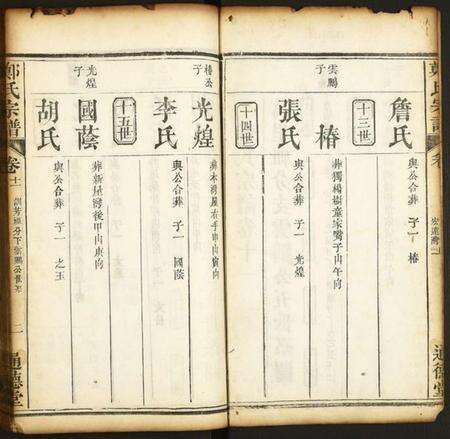 鄭氏宗譜
卷
通德堂
詹氏
與公合葬 子一 椿
十三世
雲鵬子
椿
葬獨楊樹童家嘴子山午向
張氏
與公合葬 子一 光煌
十四世
椿公子
光煌
李氏
與公合葬 子一 國蔭
十五世
光煌子
國蔭
葬新屋灣後甲山庚向
胡氏
與公合葬 子一 之玉
鄭氏宗譜
卷十二
二
通德堂